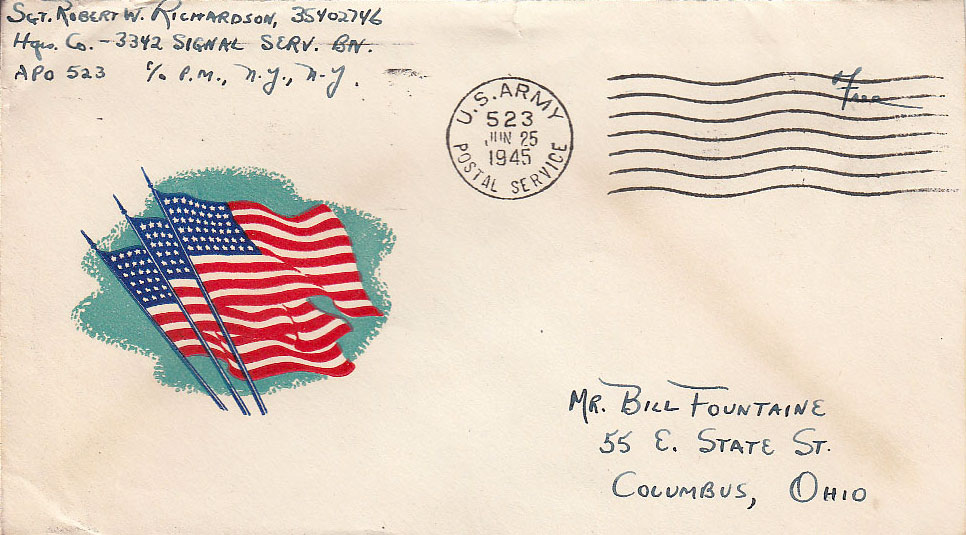 Sgt. Robert W. Richardson, 35402746
Hqs. Co. - 3342 Signal Serv. Bn.
APO 523 c/o P.M., N.Y., N.Y.
U.S. ARMY
523
JUN 25
1945
POSTAL SERVICE
Free
Mr. Bill Fountaine
55 E. State St.
Columbus, Ohio